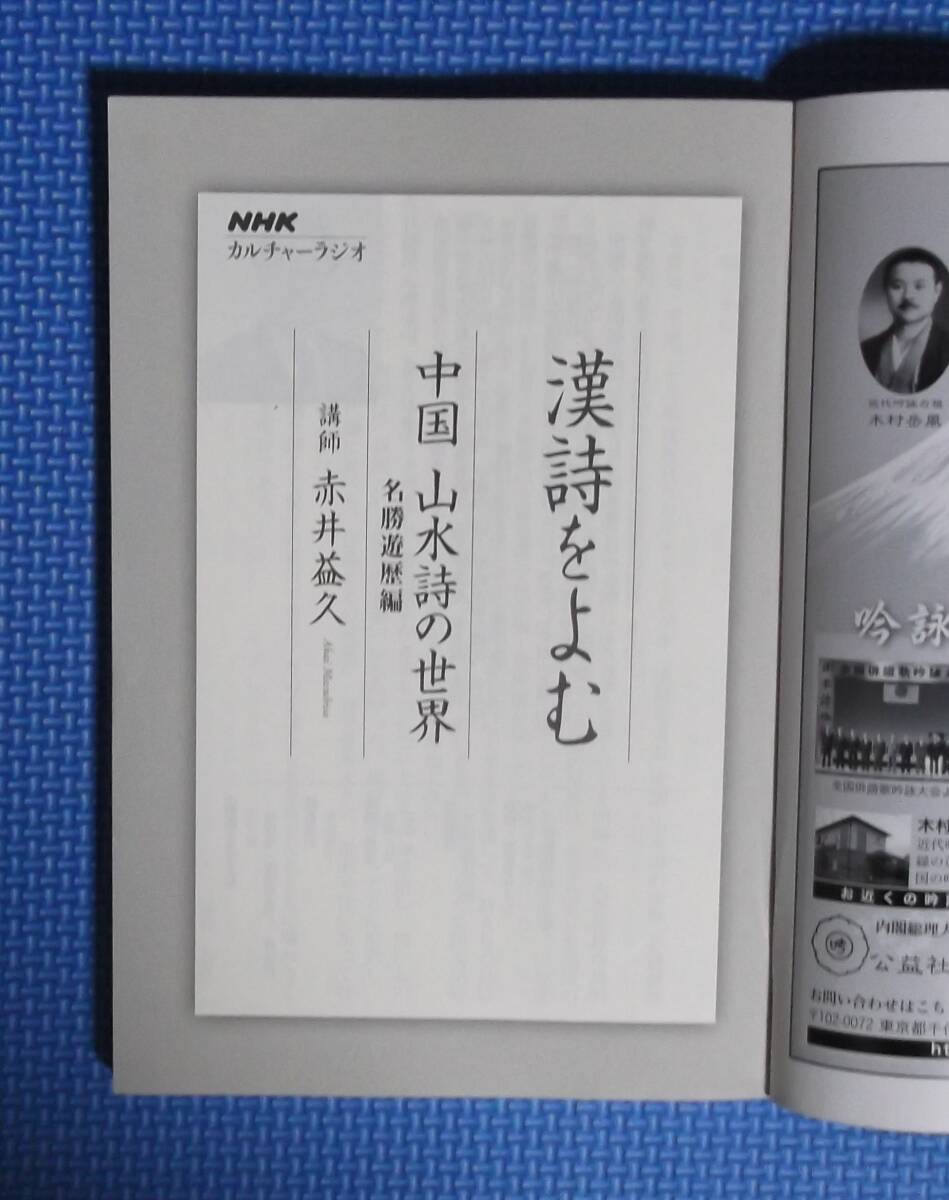 NHK
カルチャーラジオ
漢詩をよむ
中国 山水詩の世界
名勝遊歴編
講師 赤井益久
Akai Masuhisa
近代吟詠の祖
木村岳風
吟詠
全国俳諧歌吟詠大会よ
木村
近代吟
国の吟
お近くの吟
内閣総理大
公益社
お問い合わせはこち
〒102-0072 東京都千代
ht